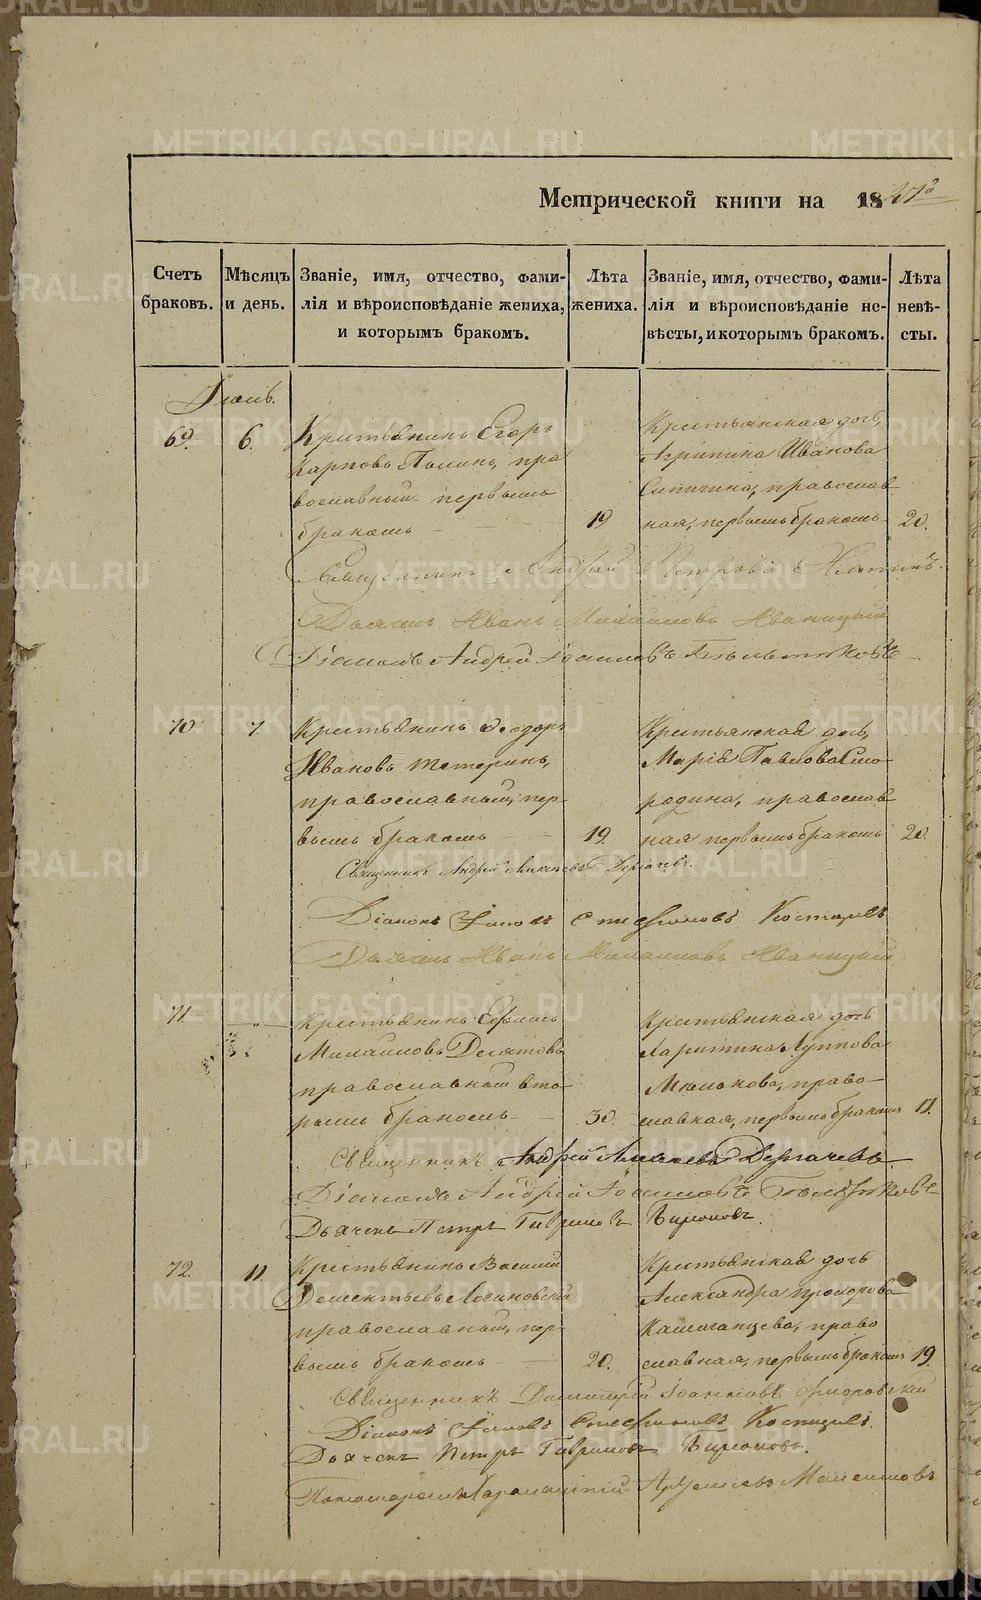 METRIKI.GASO-URAL.RU
Метрической книги на 1847
Счетъ браковъ.
Мѣсяцъ и день.
Званіе, имя, отчество, фами-
лія и вѣроисповѣданіе жениха,
и которымъ бракомъ.
Лѣта жениха.
Званіе, имя, отчество, фами-
лія и вѣроисповѣданіе не-
вѣсты, и которымъ бракомъ.
Лѣта невѣ-
сты.
69. 6.
Крестьянинъ Егоръ
Карповъ Палкинъ, пра
вославный первымъ
бракомъ 19
Крестьянская дочь,
Агрипина Иванова
православ
ная, первымъ бракомъ 20.
Священникъ Андрей Петровъ
Дьячекъ Иванъ Михайловъ Иваницкій
Діаконъ Андрей Іоанновъ
70. 7
Крестьянинъ Ѳеодоръ
Ивановъ Тетеринъ,
православный, пер-
вымъ бракомъ 19.
Крестьянская дочь,
Марія Павлова Смо-
родина, православ
ная первымъ бракомъ 20.
Священникъ Андрей Алексѣевъ Дергачевъ.
Діаконъ Іаковъ Стефановъ Костаревъ
Дьячекъ Иванъ Михайловъ Иваницкій
71 „
Крестьянинъ Ефимъ
Михайловъ Десятовъ
православный вто-
рымъ бракомъ 30.
Крестьянская дочь
Харитина Луппова
право-
славная, первымъ бракомъ 17.
Священникъ Андрей Алексѣевъ Дергачевъ
Діаконъ Андрей Іоанновъ
Дьячекъ Петръ Гавриловъ Бирюковъ.
72. 11.
Крестьянинъ Василій
Дементьевъ Логиновскій
православный, пер-
вымъ бракомъ 20.
Крестьянская дочь
Александра Прохорова
право
славная, первымъ бракомъ 19.
Священникъ Димитрій Іоанновъ
Діаконъ Іаковъ Стефановъ Костаревъ.
Дьячекъ Петръ Гавриловъ Бирюковъ.
Пономарь Максимовъ